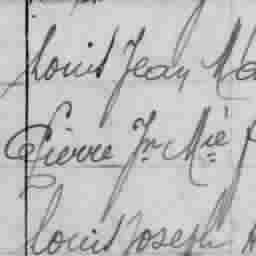 Louis Jean Ma
Pierre Jn Mie
Louis Joseph